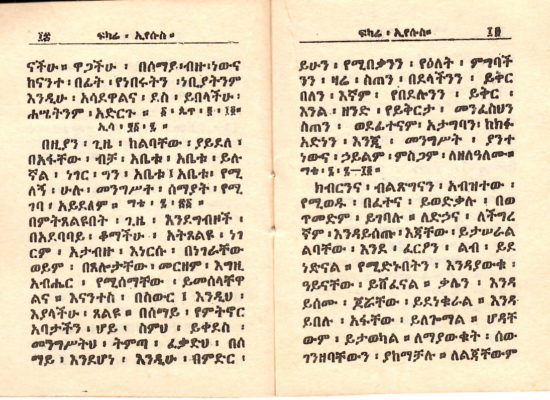 ፍካሬ ፡ ኢየሱስ ።
ናችሁ ። ዋጋችሁ ፡ በሰማይ ፡ ብዙ ፡ ነውና
ከናንተ ፡ በፊት ፡ የነበሩትን ፡ ነቢያትንም
እንዲሁ ፡ አሳደዋልና ፡ ደስ ፡ ይበላችሁ ፡
ሐሤትንም ፡ አድርጉ ።
በዚያን ፡ ጊዜ ፡ ከልባቸው ፡ ያይደለ ፡
በአፋቸው ፡ ብቻ ፡ አቤቱ ፡ አቤቱ ፡ ይሉ
ኛል ፡ ነገር ፡ ግን ፡ አቤቱ ፡ አቤቱ ፡ የሚ
ለኝ ፡ ሁሉ ፡ መንግሥተ ፡ ሰማያት ፡ የሚ
ገባ ፡ አይደለም ።
በምትጸልዩበት ፡ ጊዜ ፡ እንደግብዞች ፡
በአደባባይ ፡ ቆማችሁ ፡ አትጸልዩ ፡ ነገ
ርም ፡ አታብዙ ፡ እነርሱ ፡ በነገራቸው
ወይም ፡ በጸሎታቸው ፡ መርዘም ፡ እግዚ
አብሔር ፡ የሚሰማቸው ፡ ይመስላቸዋ
ልና ። እናንተስ ፡ በስውር ፡ እንዲህ ፡
እያላችሁ ፡ ጸልዩ ። በሰማይ ፡ የምትኖር
አባታችን ፡ ሆይ ፡ ስምህ ፡ ይቀደስ ፡
መንግሥትህ ፡ ትምጣ ፡ ፈቃድህ ፡ በሰ
ማይ ፡ እንደሆነ ፡ እንዲሁ ፡ በምድር ፡
ፍካሬ ፡ ኢየሱስ ።
ይሁን ፡ የሚበቃንን ፡ የዕለት ፡ ምግባች
ንን ፡ ዛሬ ፡ ስጠን ፡ በደላችንን ፡ ይቅር
በለን ፡ እኛም ፡ የበደሉንን ፡ ይቅር ፡
እንል ፡ ዘንድ ፡ የይቅርታ ፡ መንፈስህን
ስጠን ፡ ወደፈተናም ፡ አታግባን ፡ ከክፉ
አድነን ፡ እንጂ ፡ መንግሥት ፡ ያንተ
ነውና ፡ ኃይልም ፡ ምስጋን ፡ ለዘለዓለሙ ።
ክብርንና ፡ ብልጽግናን ፡ አብዝተው ፡
የሚወዱ ፡ በፈተና ፡ ይወድቃሉ ፡ በወ
ጥመድም ፡ ይገባሉ ። ለድኃና ፡ ለችግረ
ኛም ፡ እንዳይሰጡ ፡ እጃቸው ፡ ይታሠራል
ልባቸው ፡ እንደ ፡ ፈርዖን ፡ ልብ ፡ ይደ
ነድናል ። የሚድኑበትን ፡ እንዳያውቁ ፡
ዓይናቸው ፡ ይሸፈናል ። ቃሌን ፡ እንዳ
ይሰሙ ፡ ጆሯቸው ፡ ይደነቁራል ። እንዳ
ይበሉ ፡ አፋቸው ፡ ይለጐማል ። ሆዳቸ
ውም ፡ ይታወካል ። ለማያውቁት ፡ ሰው
ገንዘባቸውን ፡ ያከማቻሉ ። ለልጃቸውም